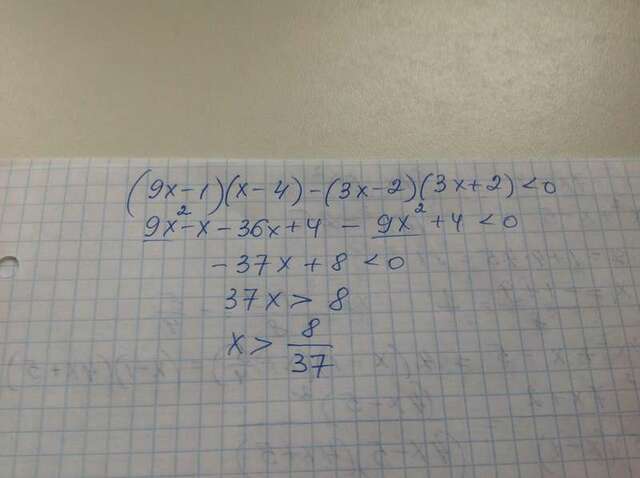 (9x-1)(x-4)-(3x-2)(3x+2)<0
9x²-x-36x+4-9x²+4<0
-37x+8<0
37x>8
x>8/37